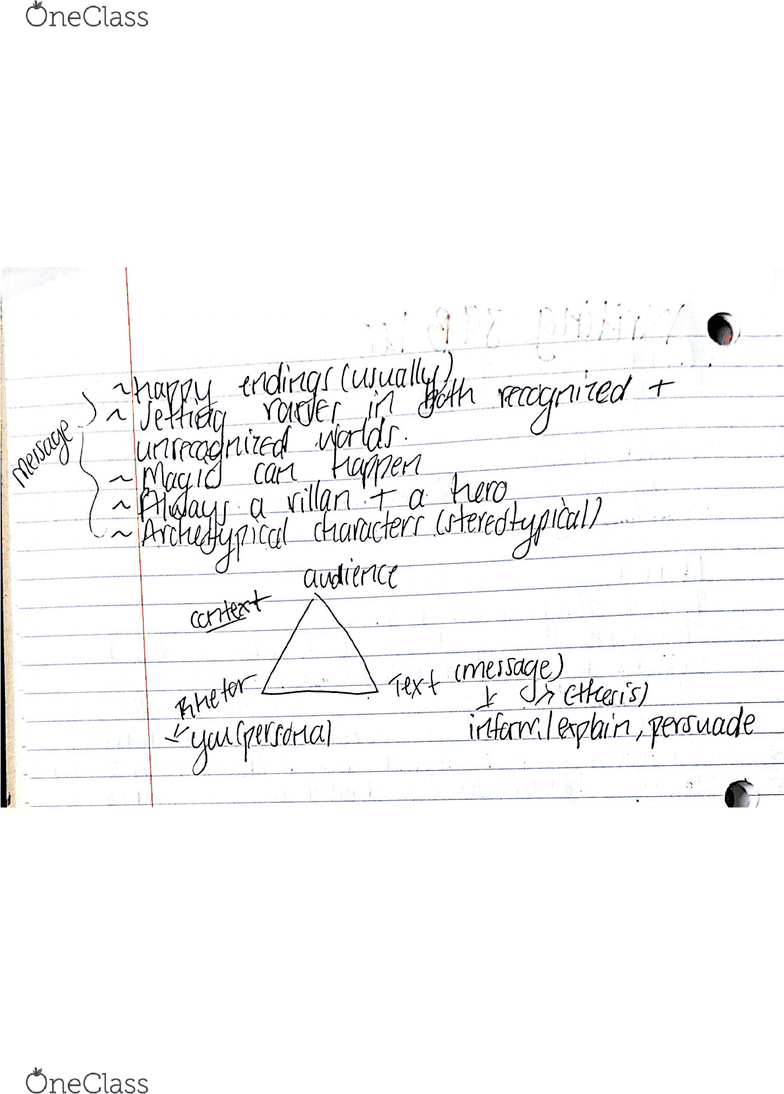 OneClass
~Happy endings (usually)
~ Setting varies in both recognized +
unrecognized worlds.
~ Magic can happen
~ Always a villan + a hero
~ Archetypical characters (steredtypical)
message
audience
context
Rhetor
Text (message)
(thesis)
you (persona)
inform/explain, persuade
OneClass